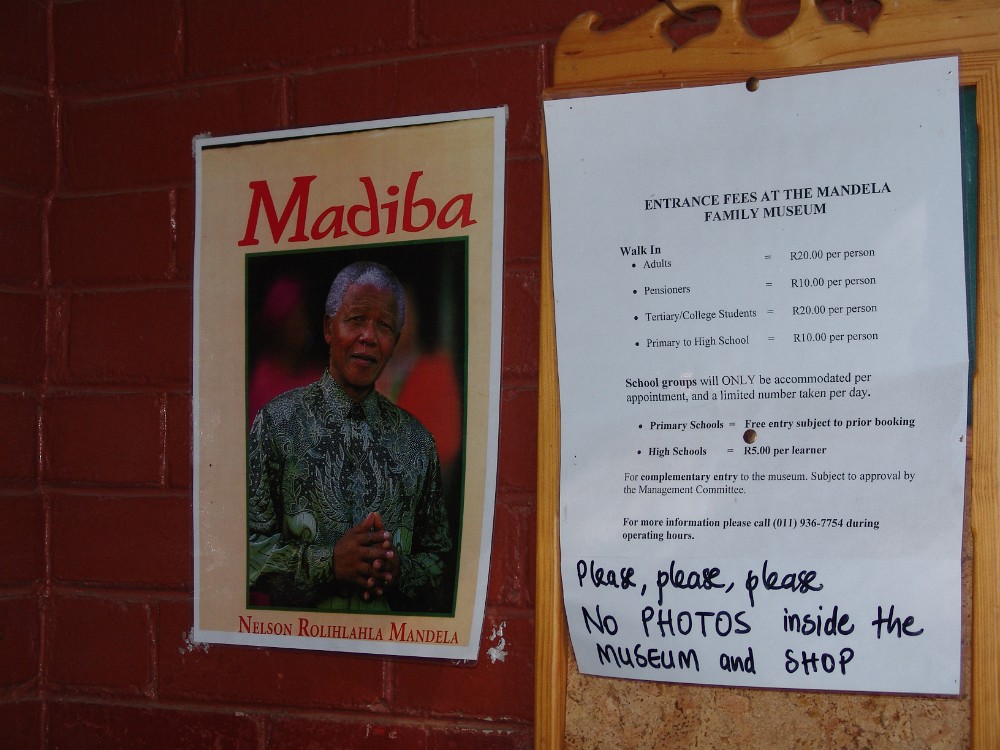 Madiba
NELSON ROLIHLAHLA MANDELA
ENTRANCE FEES AT THE MANDELA
FAMILY MUSEUM
Walk In
• Adults = R20.00 per person
• Pensioners = R10.00 per person
• Tertiary/College Students = R20.00 per person
• Primary to High School = R10.00 per person
School groups will ONLY be accommodated per
appointment, and a limited number taken per day.
• Primary Schools = Free entry subject to prior booking
• High Schools = R5.00 per learner
For complementary entry to the museum. Subject to approval by
the Management Committee.
For more information please call (011) 936-7754 during
operating hours.
Please, please, please
No PHOTOS inside the
MUSEUM and SHOP